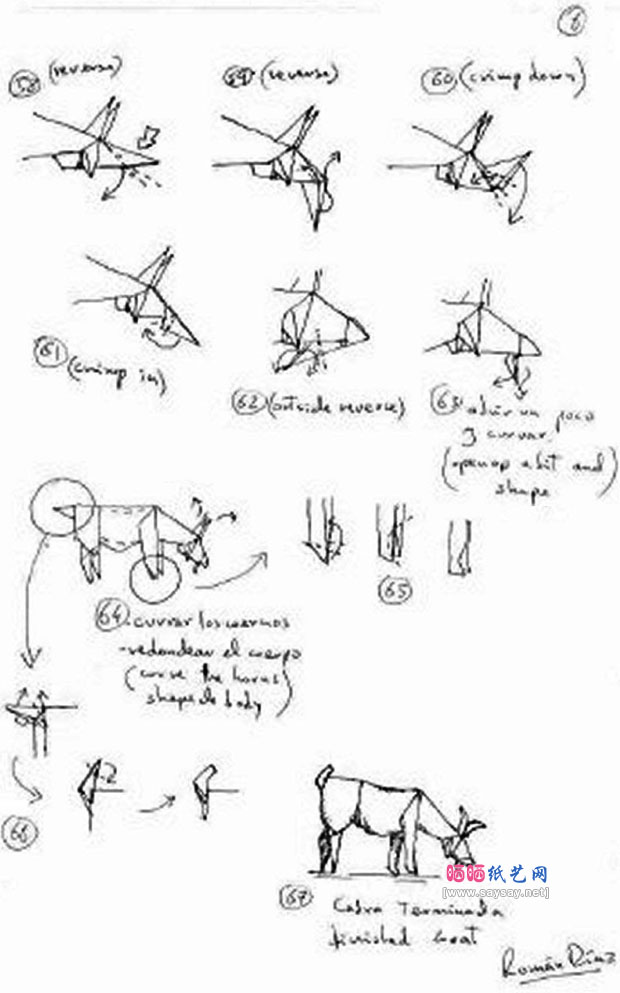 6
58 (reverse)
59 (reverse)
60 (crimp down)
61 (crimp in)
62 (outside reverse)
63 abrir un poco
y curvar
(open up a bit and
shape)
64 -curvar los cuernos
-redondear el cuerpo
(curve the horns
shape de body)
65
66
67
Cabra Terminada
finished Goat
晒晒纸艺网
[www.saysay.net]
Román Díaz